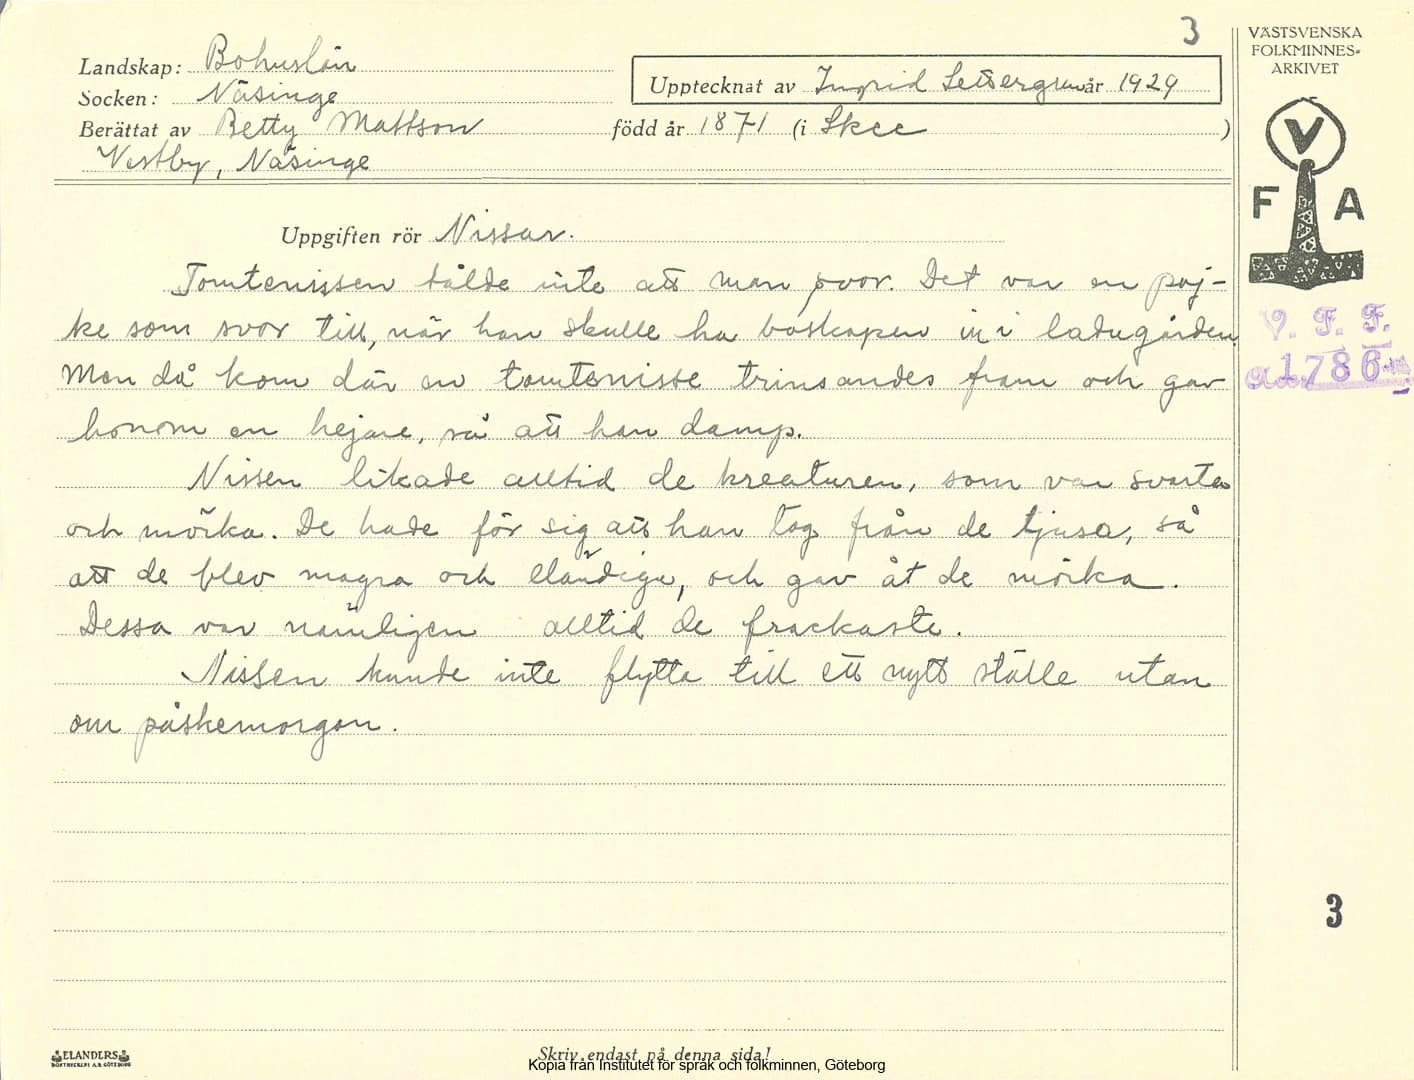 3
Landskap: Bohuslän
Socken: Näsinge
Berättat av Betty Mattson
Vestby, Näsinge
Upptecknat av Ingrid år 1929
född år 1871 (i Skee )
VÄSTSVENSKA
FOLKMINNES-
ARKIVET
V
F A
V. F. F.
1786
Uppgiften rör Nissar.
Tomtenissen tålde inte att man svor. Det var en poj-
ke som svor till, när han skulle ha boskapen in i ladugården.
Men då kom där en tomtenisse trinsandes fram och gav
honom en hejare, så att han damp.
Nissen likade alltid de kreaturen, som var svarta
och mörka. De hade för sig att han tog från de ljusa, så
att de blev magra och eländiga, och gav åt de mörka.
Dessa var nämligen alltid de frackaste.
Nissen kunde inte flytta till ett nytt ställe utan
om påskemorgon.
3
ELANDERS
BOKTRYCKERI A.B. GÖTEBORG
Skriv endast på denna sida!
Kopia från Institutet för språk och folkminnen, Göteborg